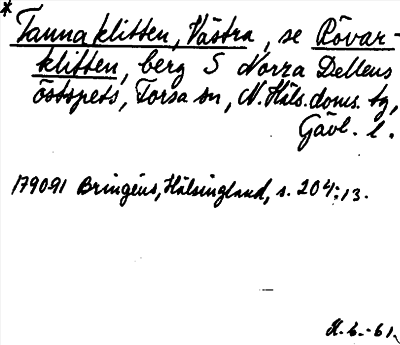 * Tannaklitten, Västra, se Rövar-
klitten, berg S Norra Dellens
östspets, Forsa sn, N. Häls. doms. tg,
Gävl. l.
179091 Bringéus, Hälsingland, s. 204:13.
H. b. -61.